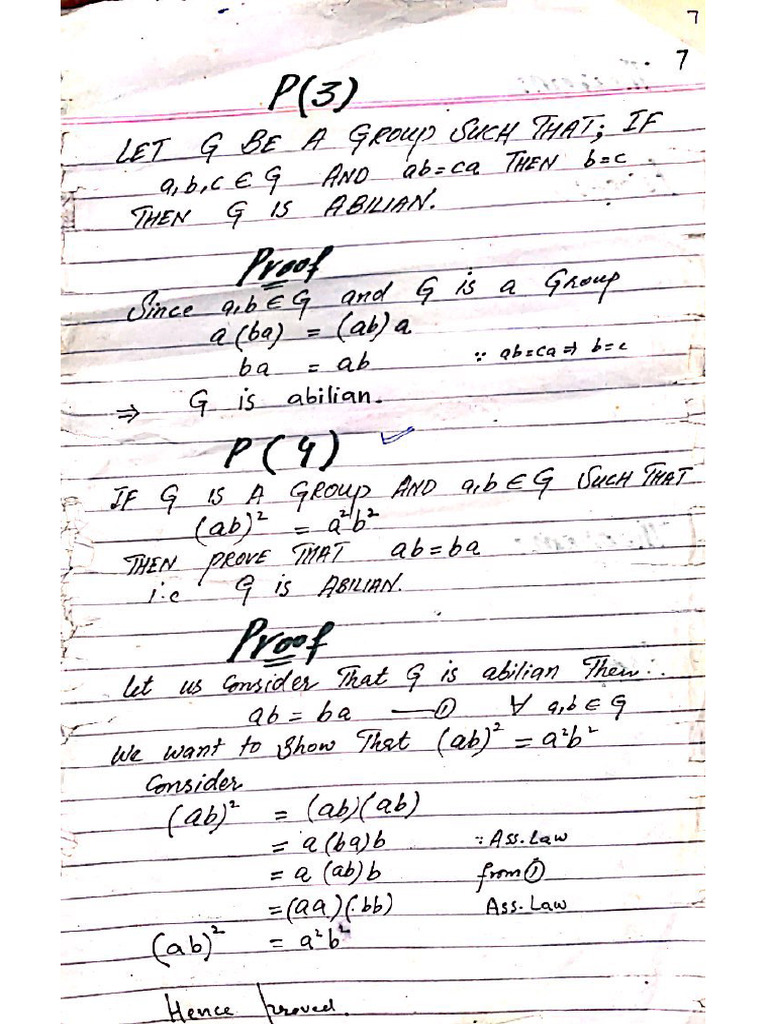 7
7
P(3)
LET G BE A GROUP SUCH THAT; IF
a,b,c ∈ G AND ab=ca THEN b=c
THEN G IS ABILIAN.
Proof
Since a,b ∈ G and G is a Group
a(ba) = (ab)a
ba = ab ∵ ab=ca ⇒ b=c
⇒ G is abilian.
P(4) ✓
IF G IS A GROUP AND a,b ∈ G SUCH THAT
(ab)² = a²b²
THEN PROVE THAT ab=ba
i.e G IS ABILIAN.
Proof
Let us Consider That G is abilian Then..
ab = ba —① ∀ a,b ∈ G
We want to Show That (ab)² = a²b²
Consider
(ab)² = (ab)(ab)
= a(ba)b ∵ Ass.Law
= a (ab)b from ①
=(aa)(bb) Ass.Law
(ab)² = a²b²
Hence proved.